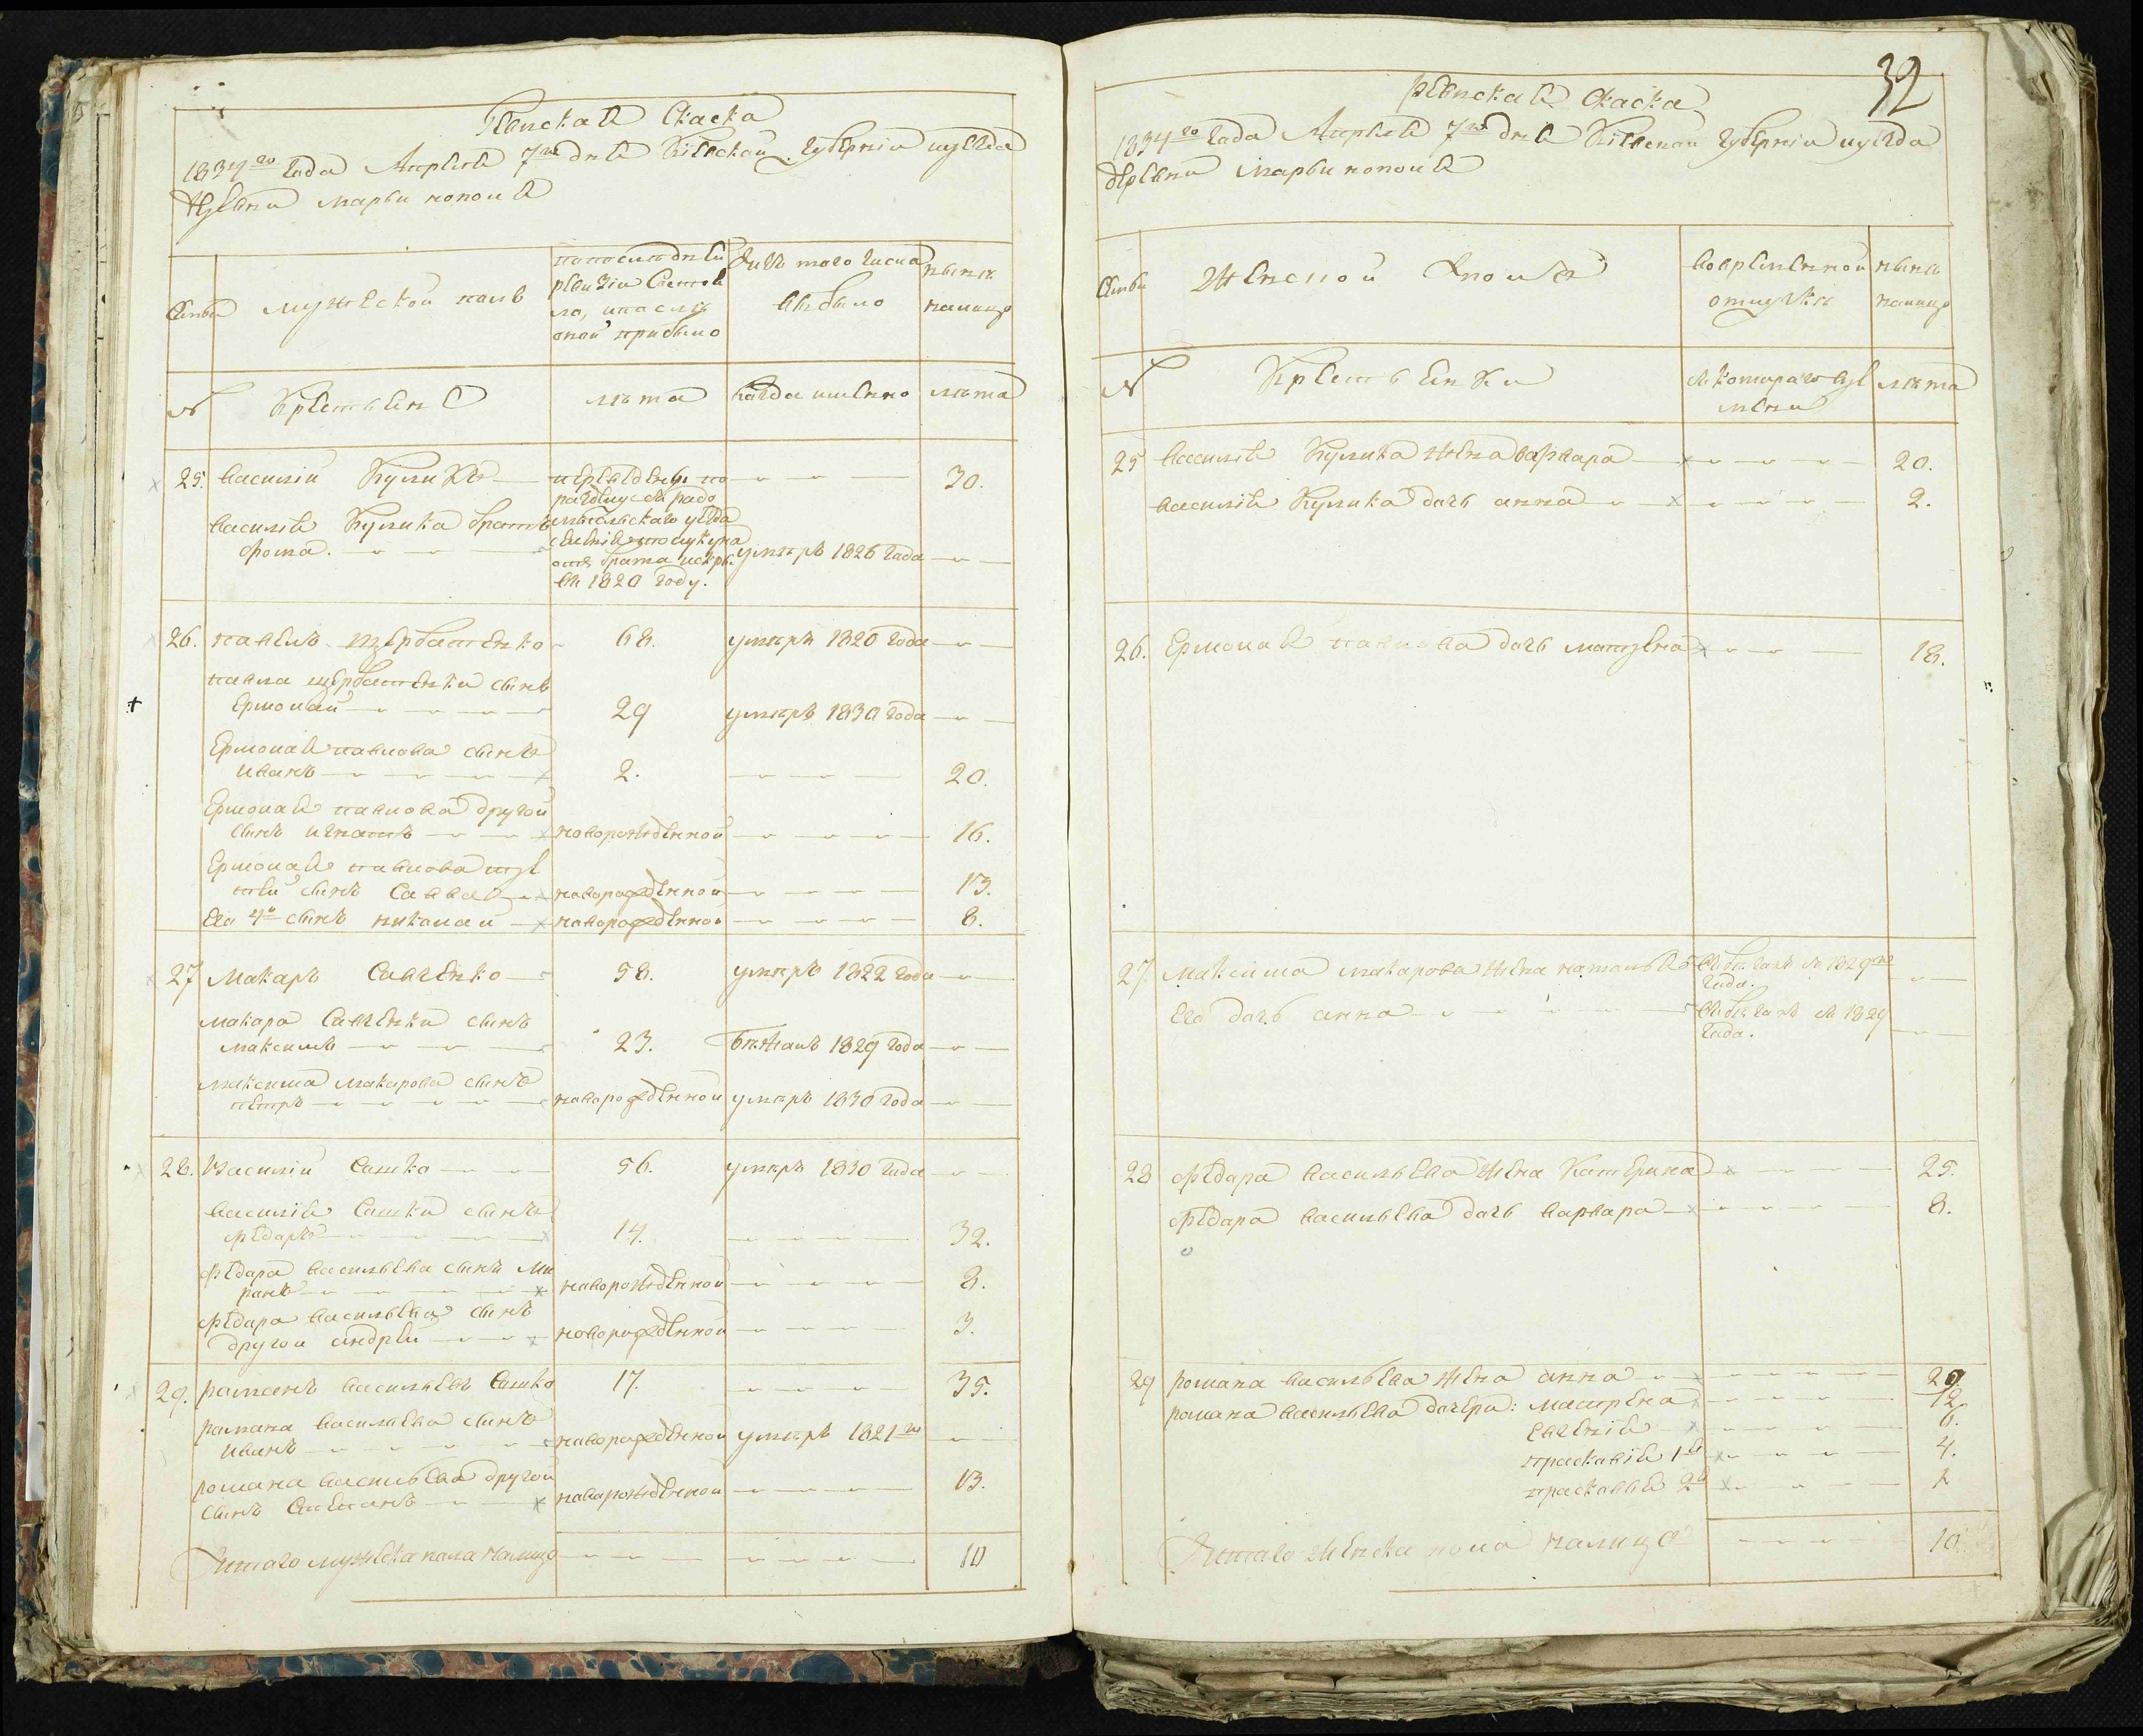 Ревиская Скаска
1834го года Апреля 7го дня Кіевской губерніи уезда
деревни марьи нополя
Семьи
мужеской полъ
по последней
ревизіи Состоя
ло, и после
оной прибыло
Изъ того числа
выбыло
ныне
налицо
№
Крестьяне
лета
когда именно
лета
25.
василій Куликъ
30.
василія Кулика братъ
фома.
въ 1820 году.
умеръ 1826 года
26.
павелъ щербатенко
68.
умеръ 1820 года
павла щербатенки сынъ
Ермолай
29
умеръ 1830 года
Ермолая павлова сынъ
иванъ
2.
20.
Ермолая павлова другой
сынъ игнатъ
новорожденной
16.
Ермолая павлова тре
тей сынъ Савва
новорожденной
13.
Его 4й сынъ николай
новорожденной
8.
27
Макаръ Савченко
58.
умеръ 1822 года
макара Савченки сынъ
максимъ
23.
бежалъ 1829 года
максима макарова сынъ
петръ
новорожденной
умеръ 1830 года
28.
Василій Сашко
56.
умеръ 1830 года
василія Сашки сынъ
федаръ
14.
32.
федара васильева сынъ ми
ранъ
новорожденной
8.
федара васильева сынъ
другой андрей
новорожденной
3.
29.
раманъ васильевъ Сашко
17.
35.
рамана васильева сынъ
иванъ
новорожденной
умеръ 1821го
романа васильева другой
сынъ Степанъ
новорожденной
13.
Итого мужеска пола налицо
10
32
Ревиская Скаска
1834го года Апреля 7го дня Кіевской губерніи уезда
деревни марьи нополя
Семьи
Женской полъ
во временной
отлучке
ныне
налицо
№
Крестьянки
съ которого вре
мени
лета
25
василія Кулика жена варвара
20.
василія Кулика дочь анна
2.
26.
Ермолая павлова дочь матрена
18.
27
максима макарова жена наталья
въ бегахъ съ 1829го
года.
Его дочь анна
въ бегахъ съ 1829
года.
28
федара васильева жена Катерина
25.
федара васильева дочь варвара
8.
29
романа васильева жена анна
29
романа васильева дочери: матрена
12
Евгенія
6.
праскавія 1я
4.
праскавья 2я
Итого женска пола налицо
10